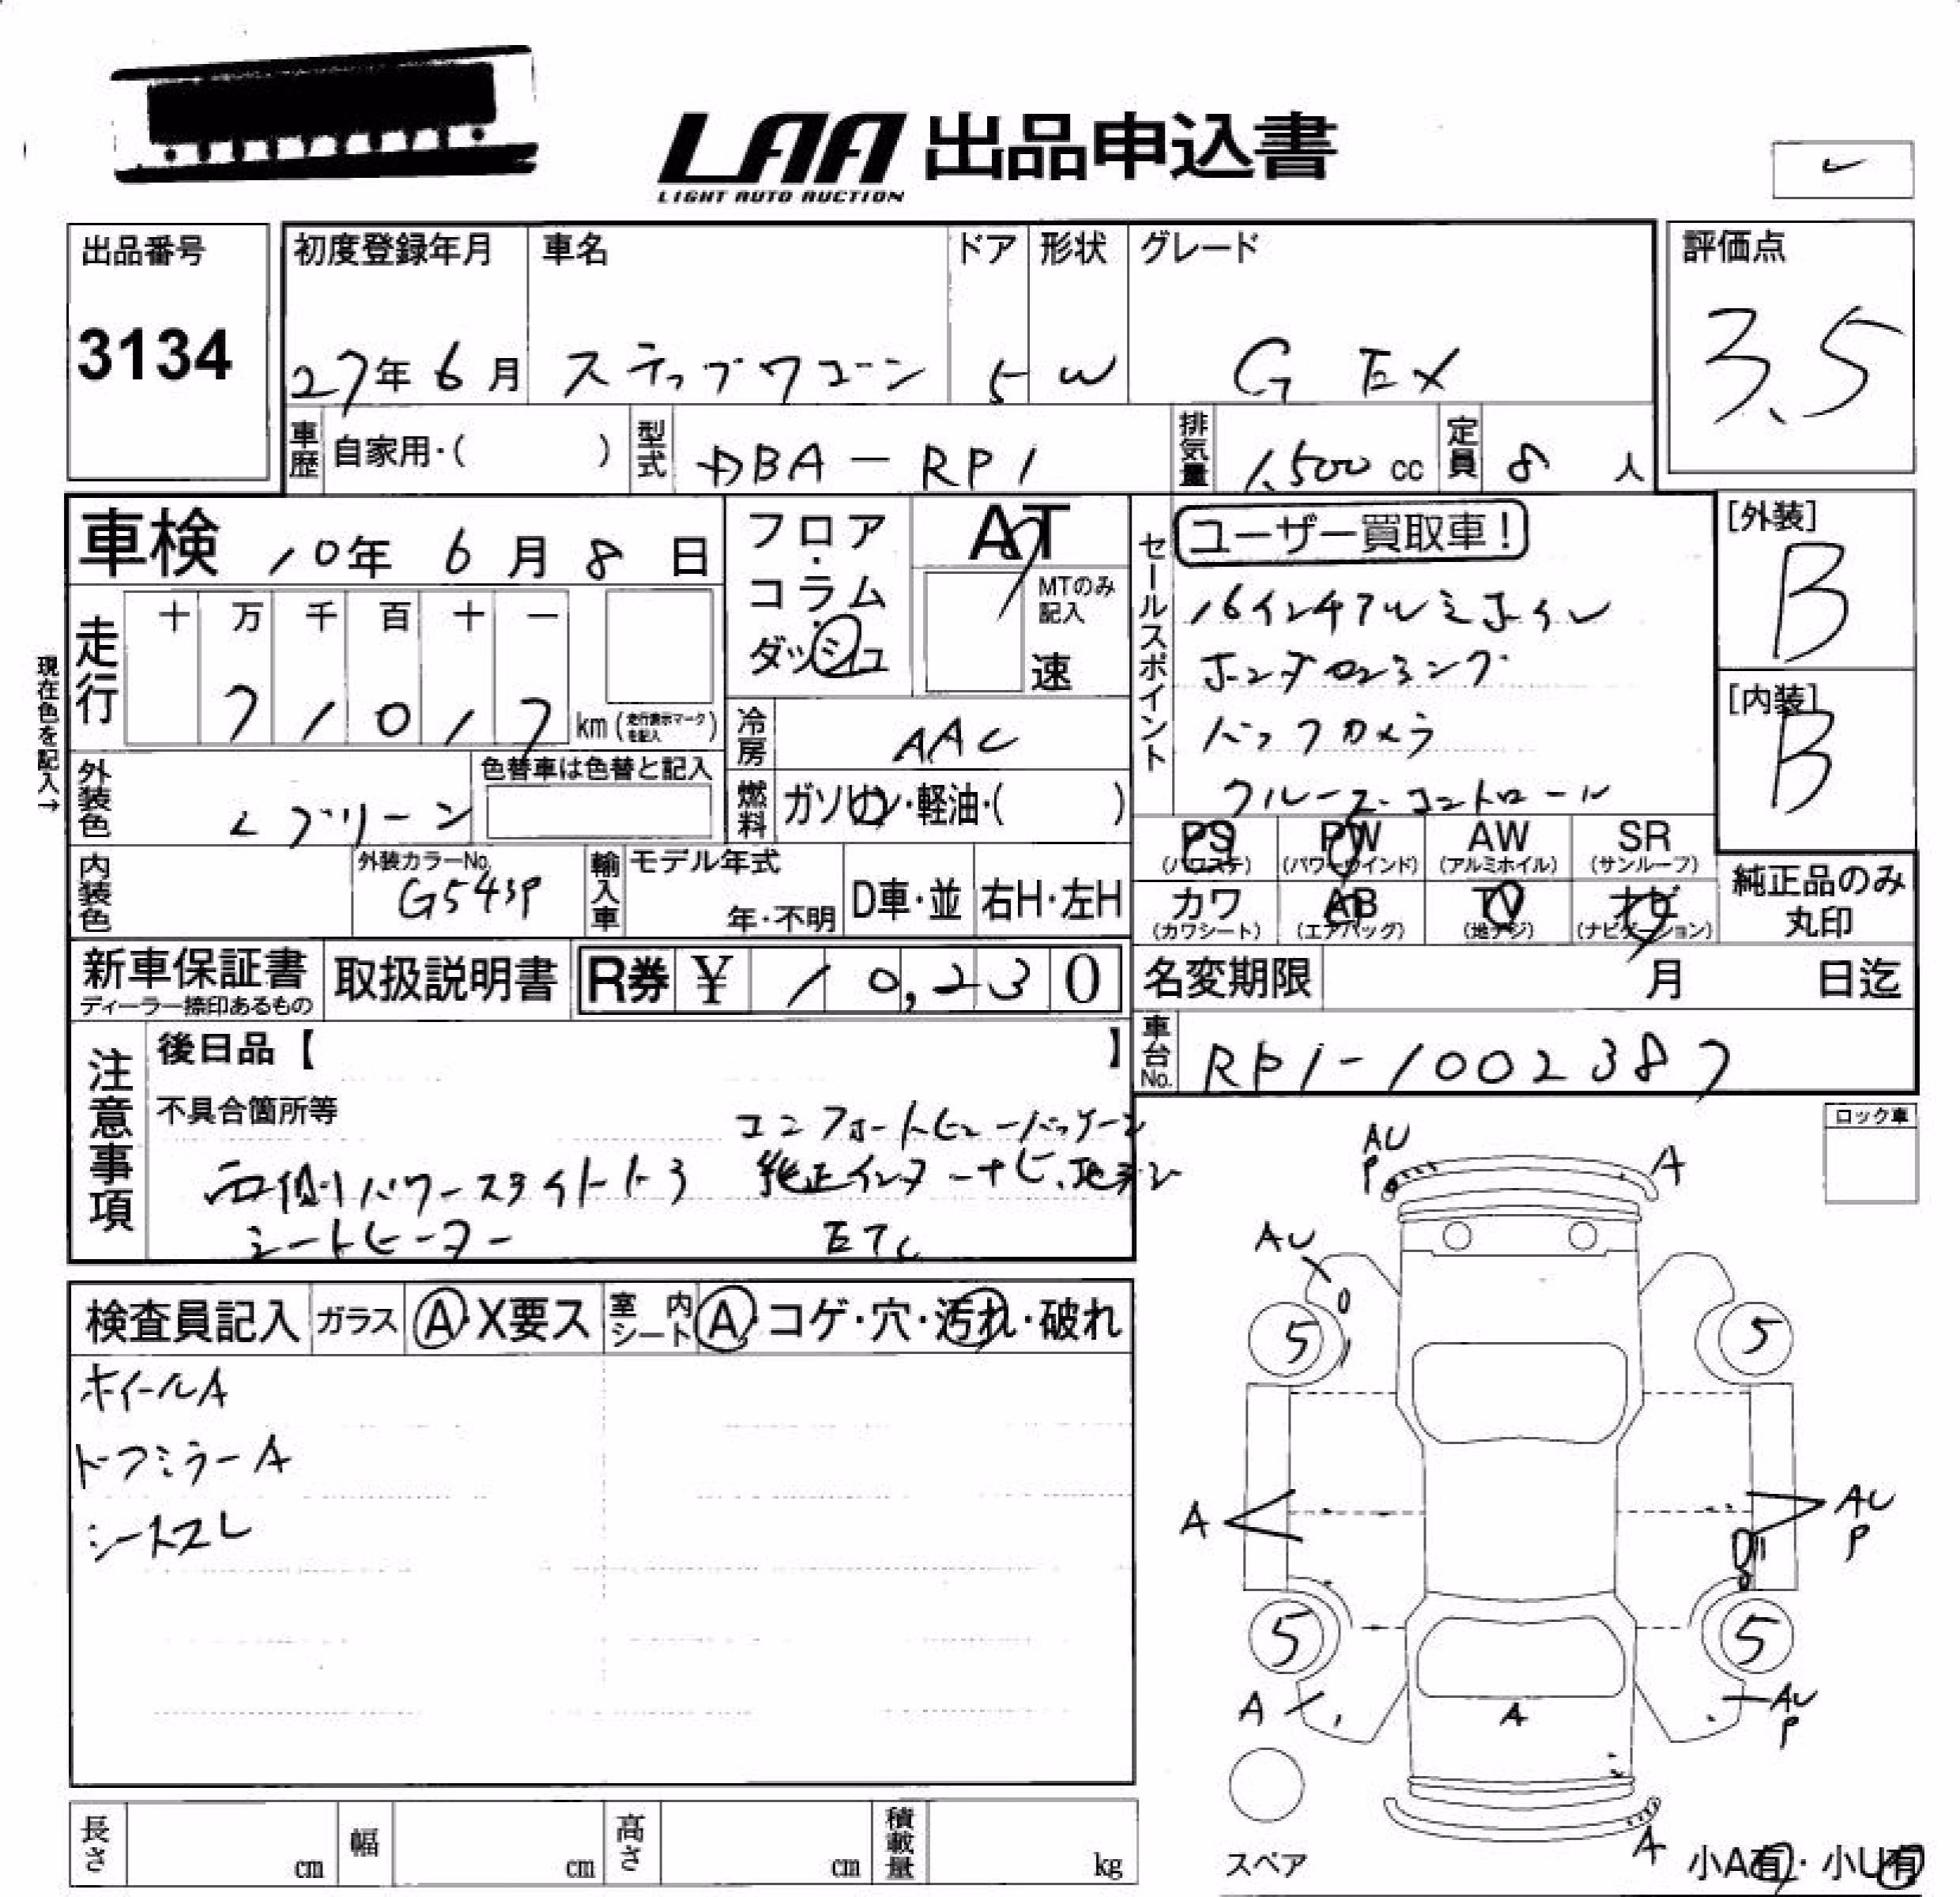 LAA 出品申込書
LIGHT AUTO AUCTION
出品番号
3134
初度登録年月
27年 6月
車名
ステップワゴン
ドア
5
形状
W
グレード
G EX
評価点
3.5
車歴
自家用・( )
型式
DBA-RP1
排気量
1,500 cc
定員
8 人
車検 10年 6月 8日
フロア・コラム・ダッシュ
AT
MTのみ記入
速
セールスポイント
ユーザー買取車!
16インチアルミホイル
ホンダセンシング
バックカメラ
クルーズコントロール
[外装]
B
[内装]
B
現在色を記入→
走行
十 万 千 百 十 一
7 1 0 1 7 km (走行表示マークを記入)
冷房
AAC
外装色
グリーン
色替車は色替と記入
燃料
ガソリン・軽油・( )
内装色
外装カラーNo.
G543P
輸入車
モデル年式
年・不明
D車・並
右H・左H
PS (パワステ)
PW (パワーウインド)
AW (アルミホイル)
SR (サンルーフ)
カワ (カワシート)
AB (エアバッグ)
TV (地デジ)
ナビ (ナビゲーション)
純正品のみ丸印
新車保証書
ディーラー捺印あるもの
取扱説明書
R券 ¥ 10,230
名変期限
月 日迄
注意事項
後日品【 】
不具合箇所等
コンフォートビューパッケージ
両側パワースライドドア 純正インターナビ、地デジ
シートヒーター ETC
車台No.
RP1-1002387
ロック車
検査員記入
ガラス
A・X要ス
室内シート
A・コゲ・穴・汚れ・破れ
ホイールA
ドアミラーA
シートスレ
AU
P
A
AU
5
5
A
AU
P
5
5
A
A
AU
P
A
スペア
小A有・小U有
長さ
cm
幅
cm
高さ
cm
積載量
kg